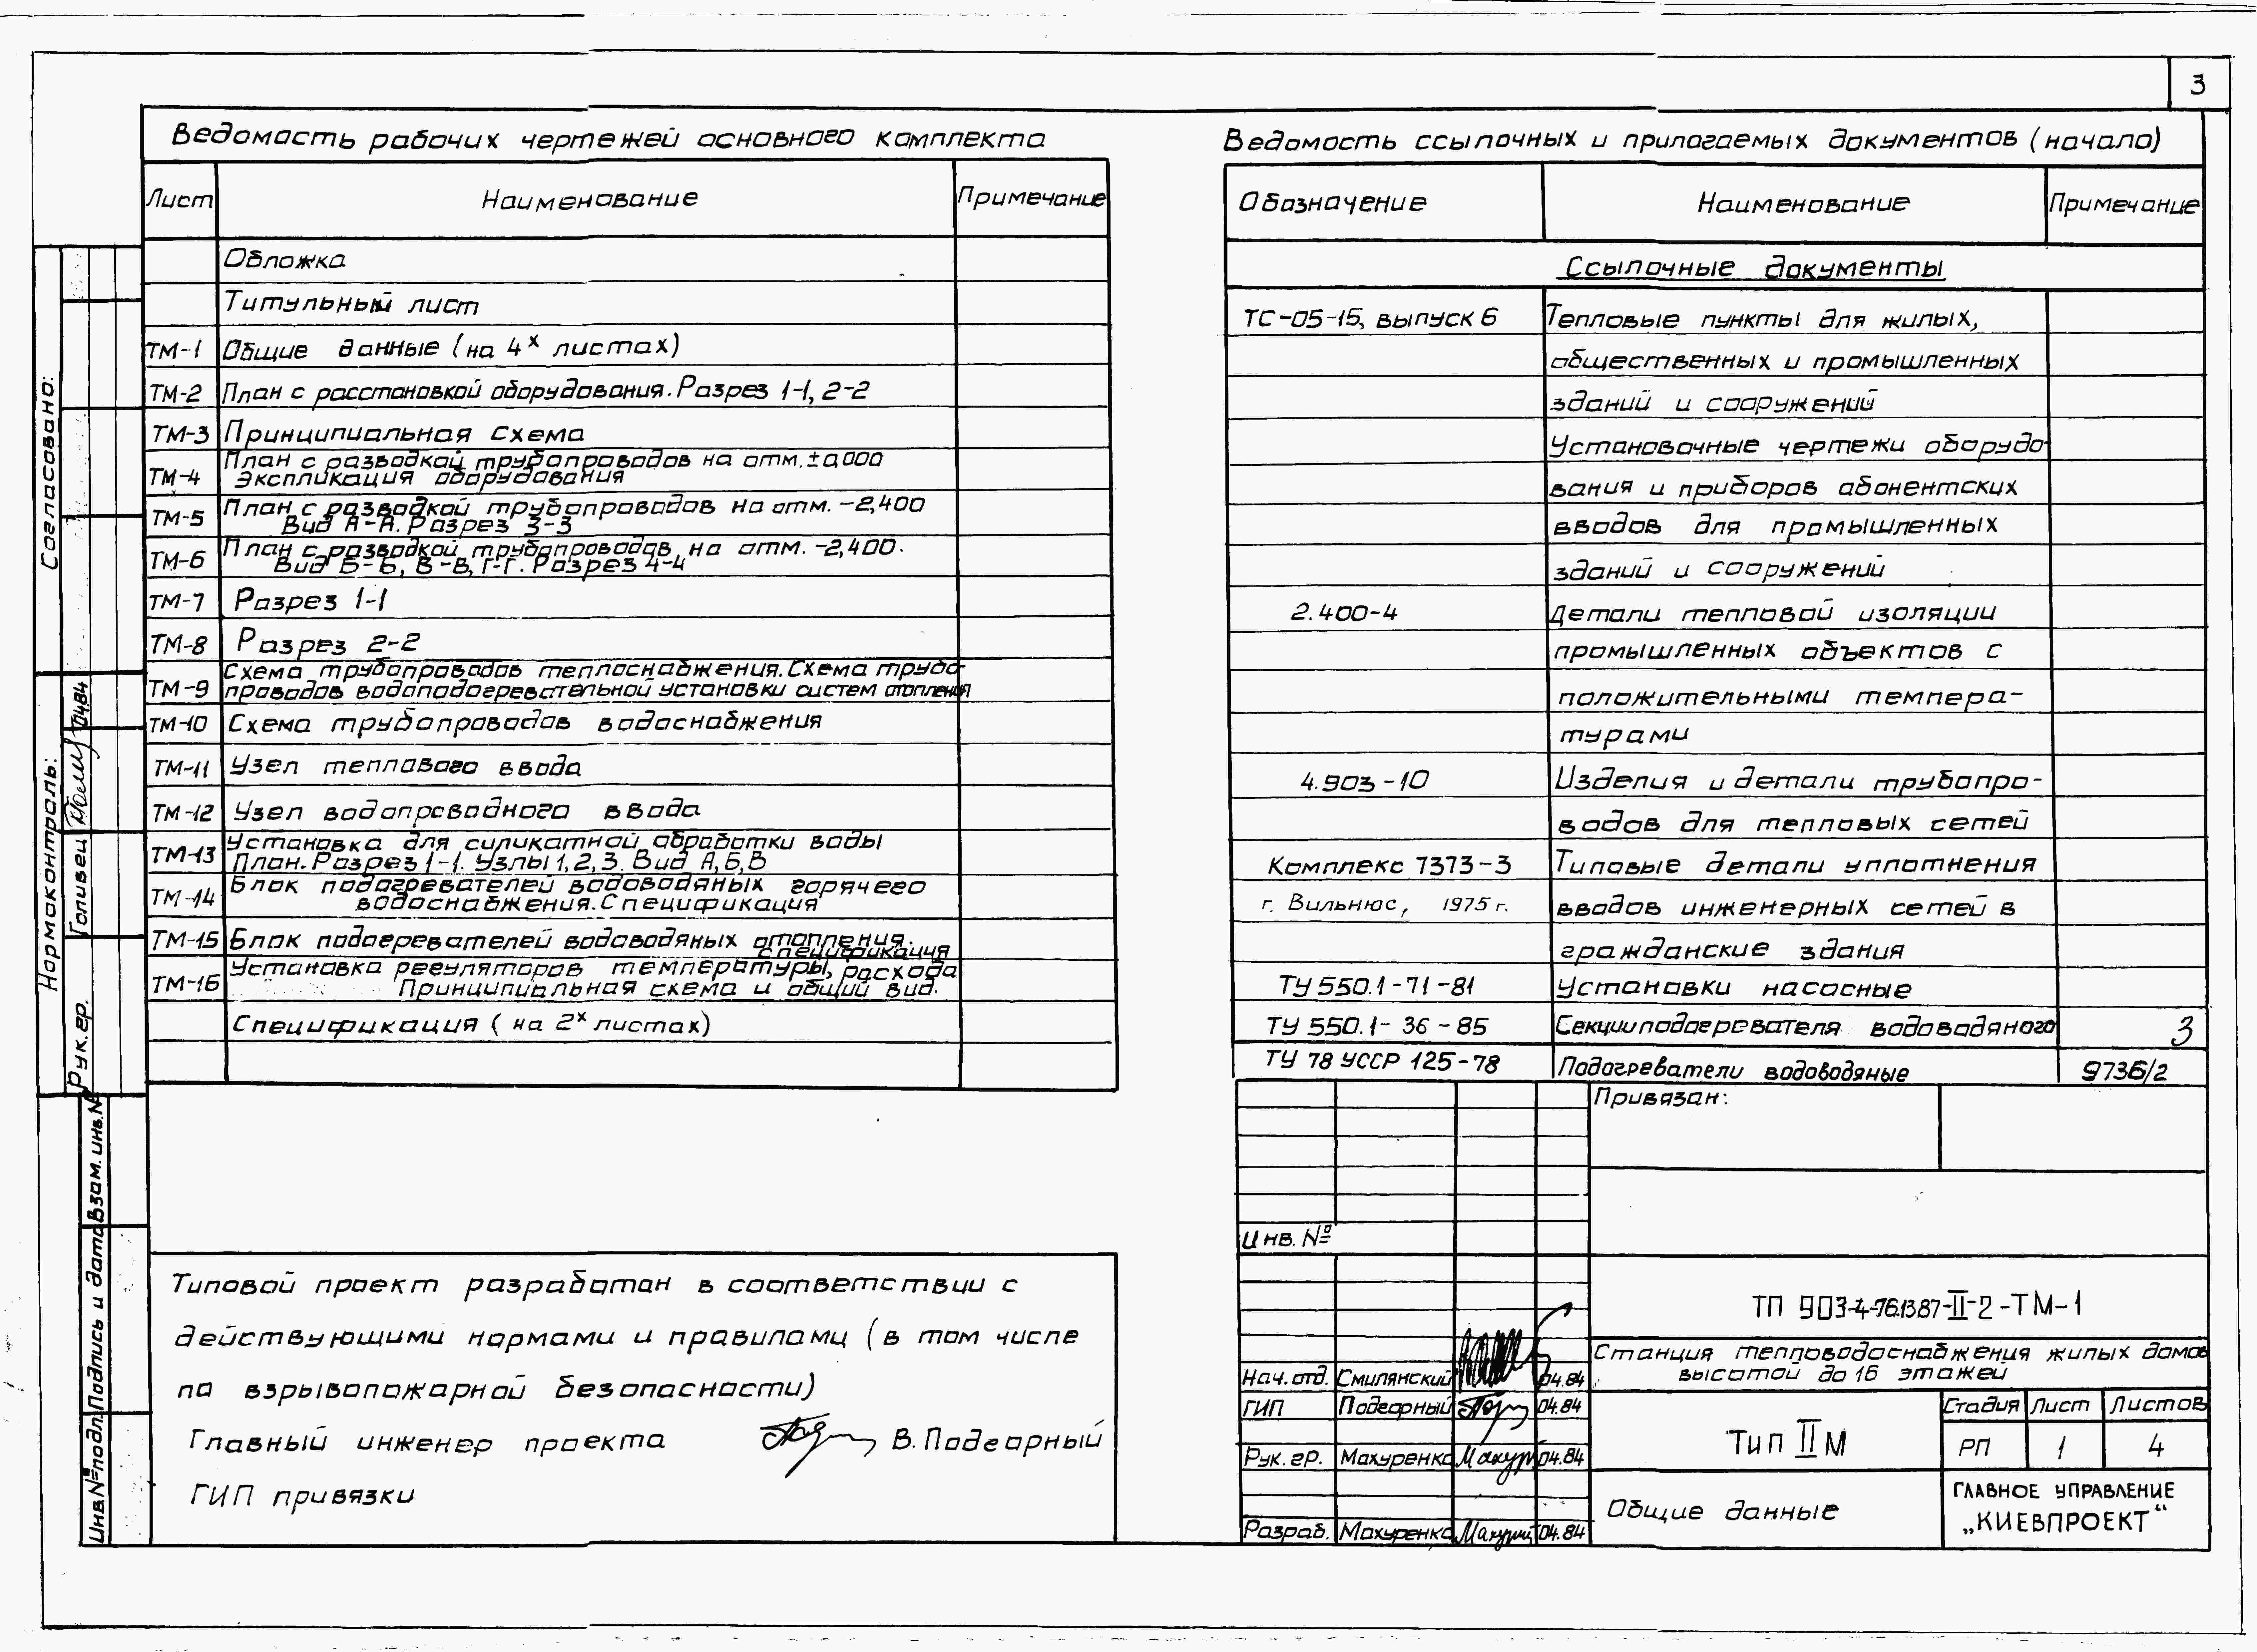 3
Ведомость рабочих чертежей основного комплекта
Лист Наименование Примечание
Обложка
Титульный лист
ТМ-1 Общие данные (на 4х листах)
ТМ-2 План с расстановкой оборудования. Разрез 1-1, 2-2
ТМ-3 Принципиальная схема
ТМ-4 План с разводкой трубопроводов на отм. ±0,000
Экспликация оборудования
ТМ-5 План с разводкой трубопроводов на отм. -2,400
Вид А-А. Разрез 3-3
ТМ-6 План с разводкой трубопроводов на отм. -2,400.
Вид Б-Б, В-В, Г-Г. Разрез 4-4
ТМ-7 Разрез 1-1
ТМ-8 Разрез 2-2
ТМ-9 Схема трубопроводов теплоснабжения. Схема трубо-
проводов водоподогревательной установки систем отопления
ТМ-10 Схема трубопроводов водоснабжения
ТМ-11 Узел теплового ввода
ТМ-12 Узел водопроводного ввода
ТМ-13 Установка для силикатной обработки воды
План. Разрез 1-1. Узлы 1,2,3. Вид А,Б,В
ТМ-14 Блок подогревателей водоводяных горячего
водоснабжения. Спецификация
ТМ-15 Блок подогревателей водоводяных отопления.
спецификация
ТМ-16 Установка регуляторов температуры, расхода
Принципиальная схема и общий вид.
Спецификация (на 2х листах)
Ведомость ссылочных и прилагаемых документов (начало)
Обозначение Наименование Примечание
Ссылочные документы
ТС-05-15, выпуск 6 Тепловые пункты для жилых,
общественных и промышленных
зданий и сооружений
Установочные чертежи оборудо-
вания и приборов абонентских
вводов для промышленных
зданий и сооружений
2.400-4 Детали тепловой изоляции
промышленных объектов с
положительными темпера-
турами
4.903-10 Изделия и детали трубопро-
водов для тепловых сетей
Комплекс 7373-3 Типовые детали уплотнения
г. Вильнюс, 1975 г. вводов инженерных сетей в
гражданские здания
ТУ 550.1-71-81 Установки насосные
ТУ 550.1-36-85 Секции подогревателя водоводяного 3
ТУ 78 УССР 125-78 Подогреватели водоводяные 9736/2
Согласовано:
Нормоконтроль:
Рук. гр. Голивец 0484
Взам. инв. №
Подпись и дата
Инв. № подл.
Типовой проект разработан в соответствии с
действующими нормами и правилами (в том числе
по взрывопожарной безопасности)
Главный инженер проекта В. Подгорный
ГИП привязки
Привязан:
Инв. №
ТП 903-4-76.13.87-II-2-ТМ-1
Станция тепловодоснабжения жилых домов
высотой до 16 этажей
Нач. отд. Смилянский 04.84
ГИП Подгорный 04.84
Рук. гр. Махуренко 04.84
Разраб. Махуренко 04.84
Тип II М
Стадия Лист Листов
РП 1 4
Общие данные
ГЛАВНОЕ УПРАВЛЕНИЕ
„КИЕВПРОЕКТ“